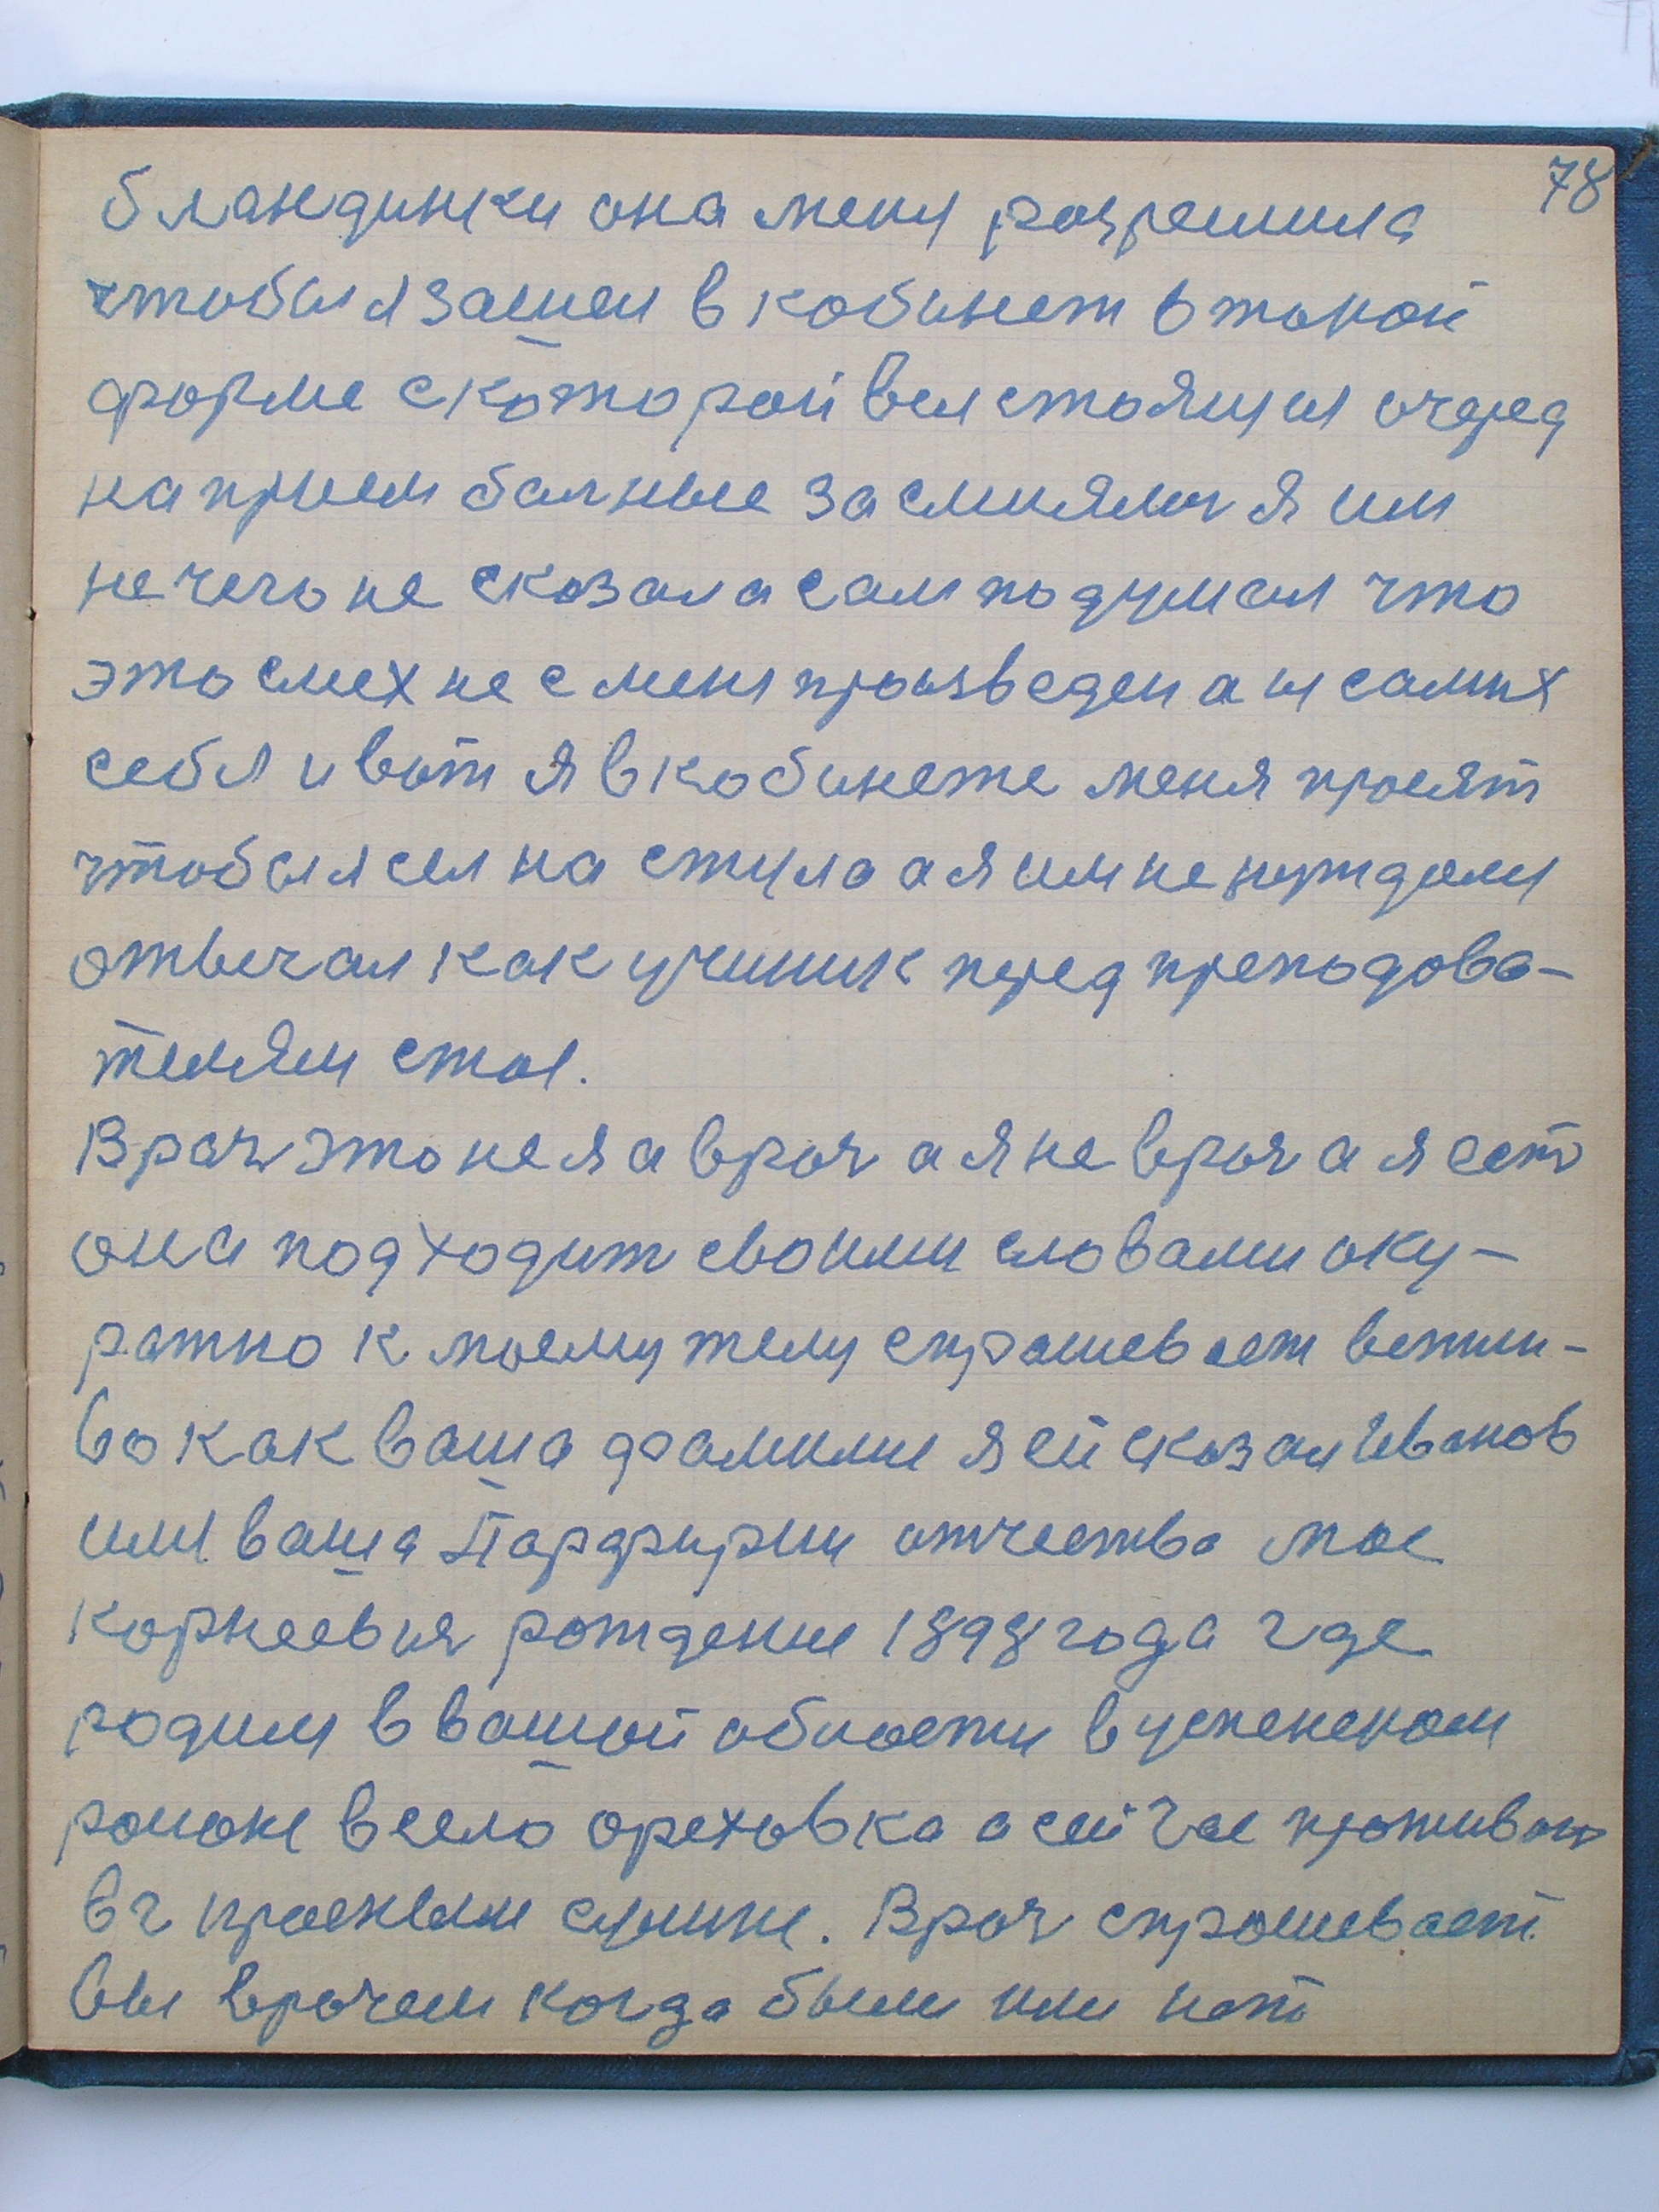 78
бландинки она мени розрешила
чтобы я зашел в кобинет в токой
форме с которой вси стоящия очеред
на прием балные засмиялис я им
не чего не сказал а сам подумал что
это смех не с меня произведен а и самих
себя и вот я в кобинете меня просят
чтобы я сел на стула а я им не нуждаяи
отвечал как ученик перед преподова-
телям стоя.
Врач это не я а врач а я не врач а я ест
она подходит своими словами оку-
ратно к моему телу спрашевает вежли-
во как ваша фамилие я ей сказал Иванов
имя ваша Парфирии отчества мое
корнеевич рождение 1898 года где
родилис в вашой области в успенском
районе в село ореховка а сейчас проживаю
в г красным сулине. Врач спрошевает
вы врачем когда были или нет